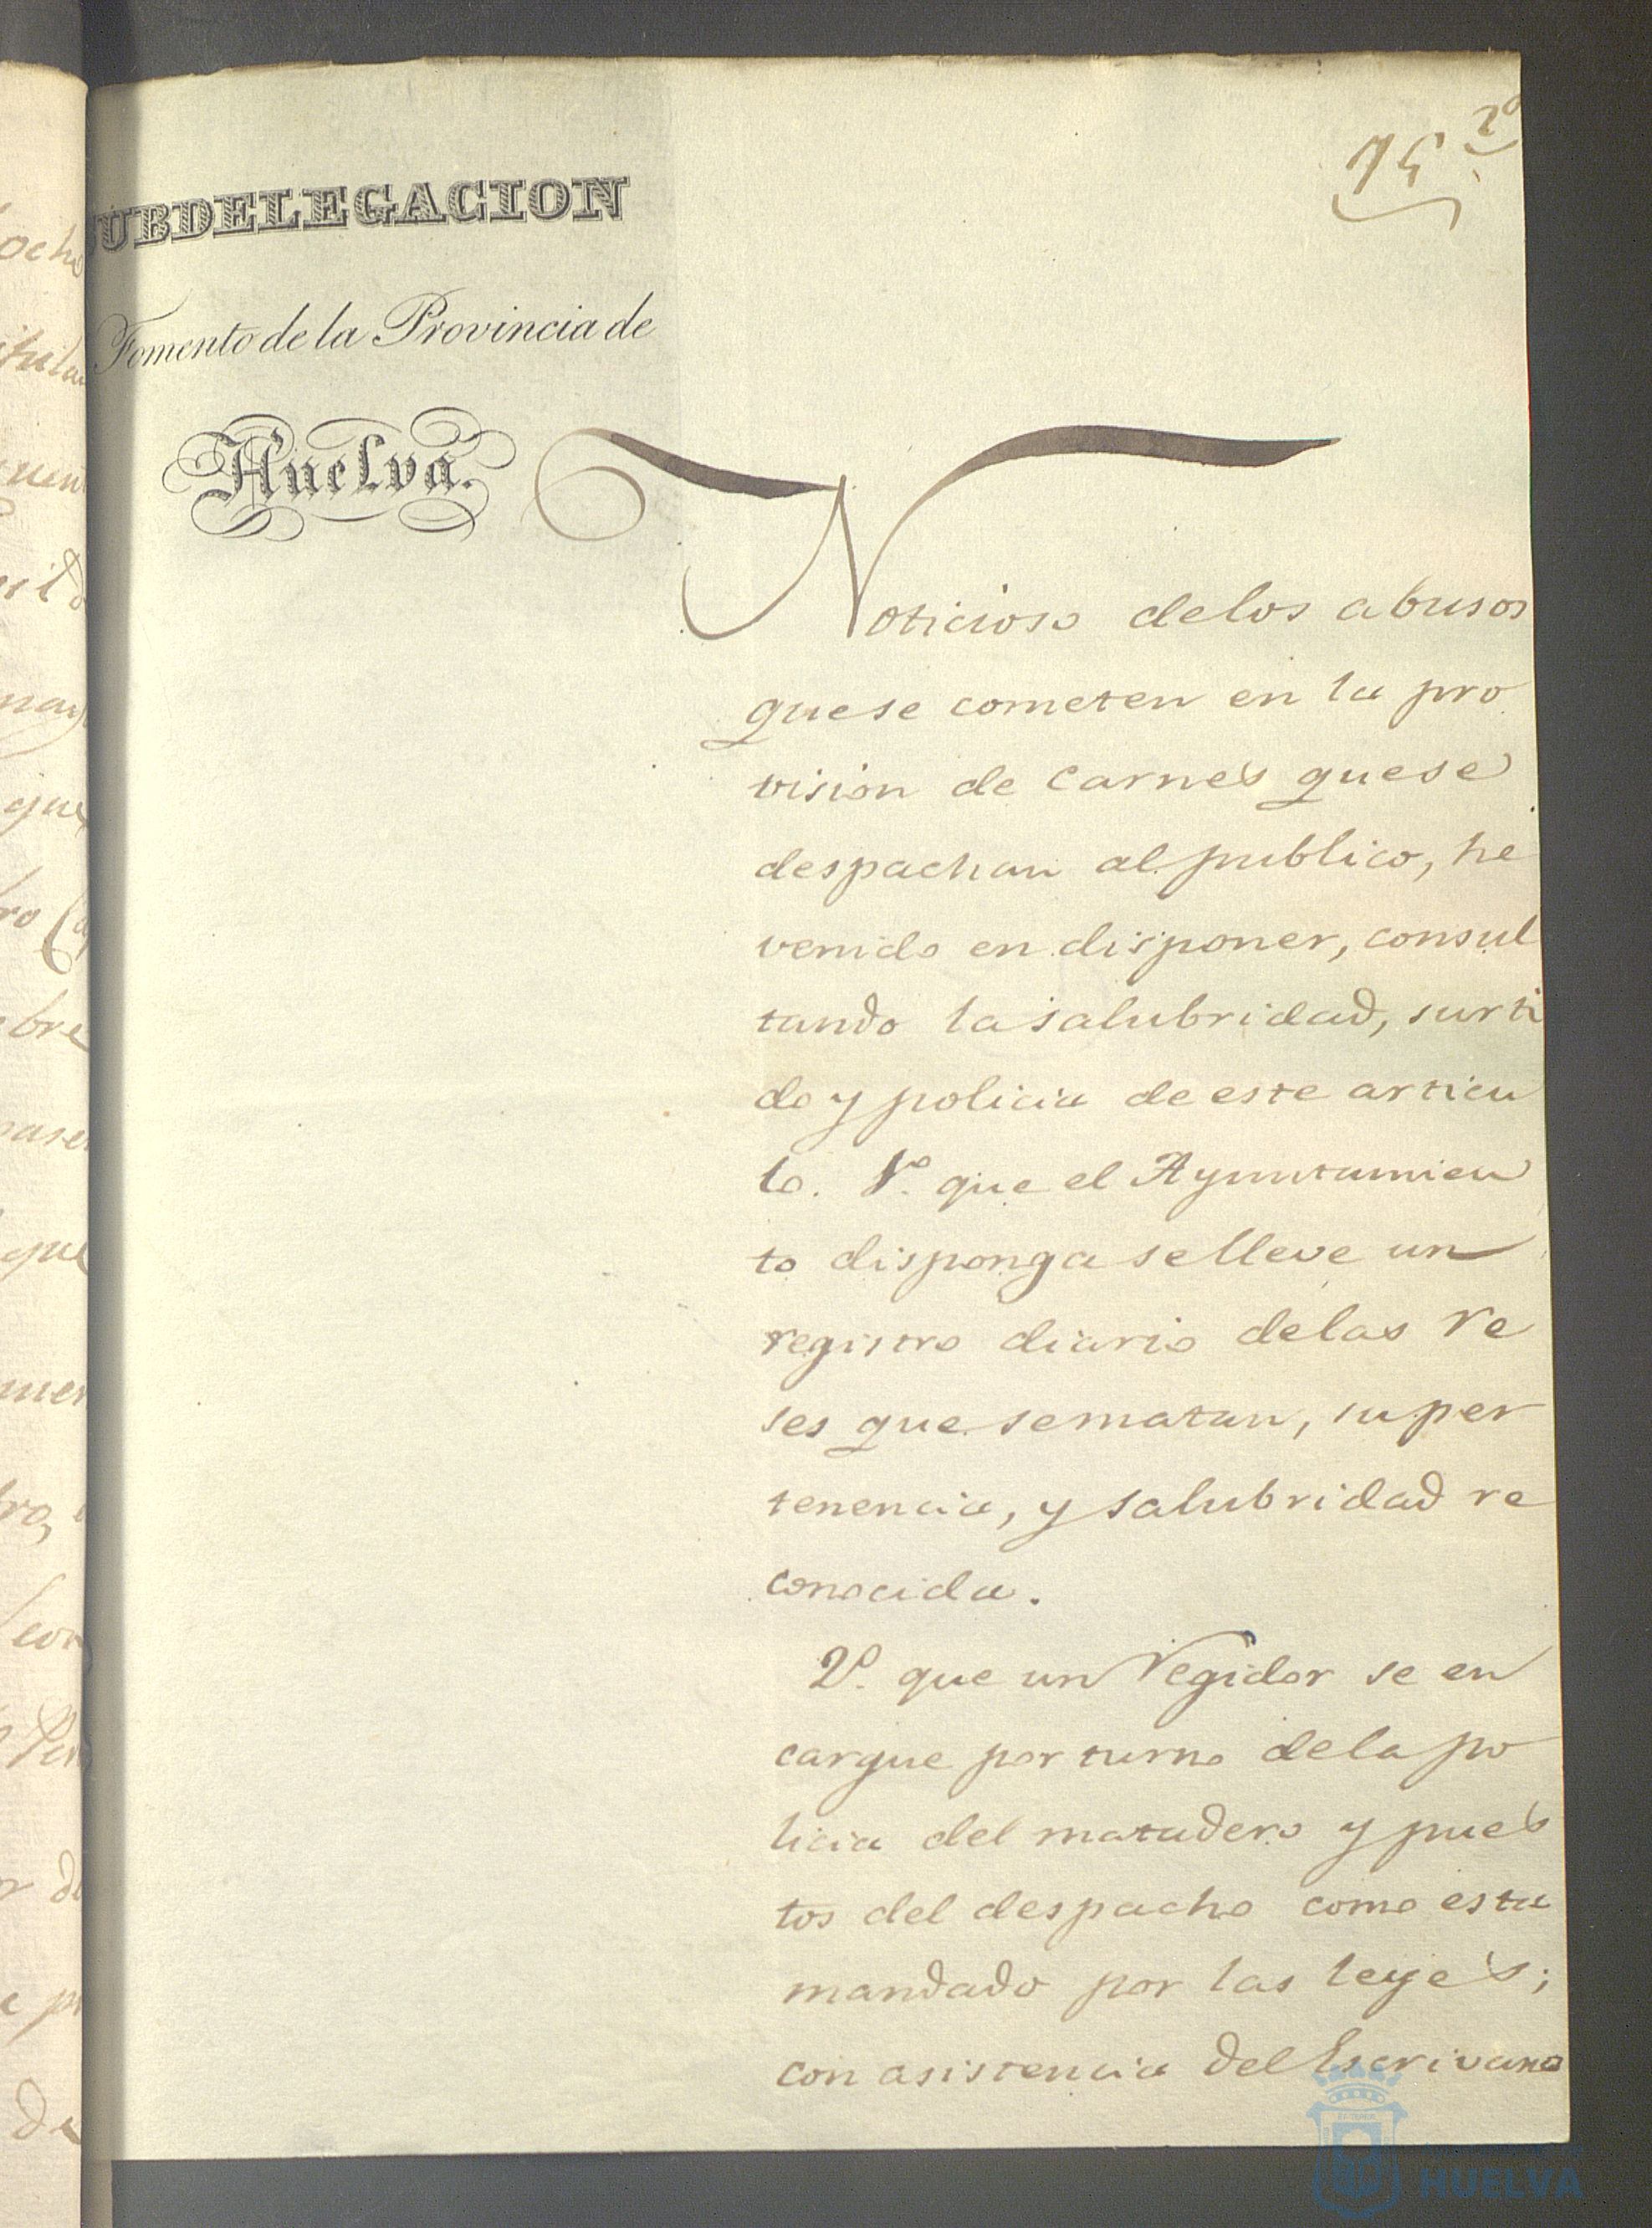 2º
75
UBDELEGACION
Fomento de la Provincia de
Huelva.
Noticioso delos abusos
quese cometen en la pro
vision de carnes quese
despachan al publico, he
venido en disponer, consul
tando la salubridad, surti
do y policia de este articu
lo. 1º que el Ayuntamien
to disponga se lleve un
registro diario delas re
ses que sematan, su per
tenencia, y salubridad re
conocida.
2º que un regidor se en
cargue por turno dela po
licia del matadero y pues
tos del despacho como esta
mandado por las leyes;
con asistencia del Escrivano
HUELVA